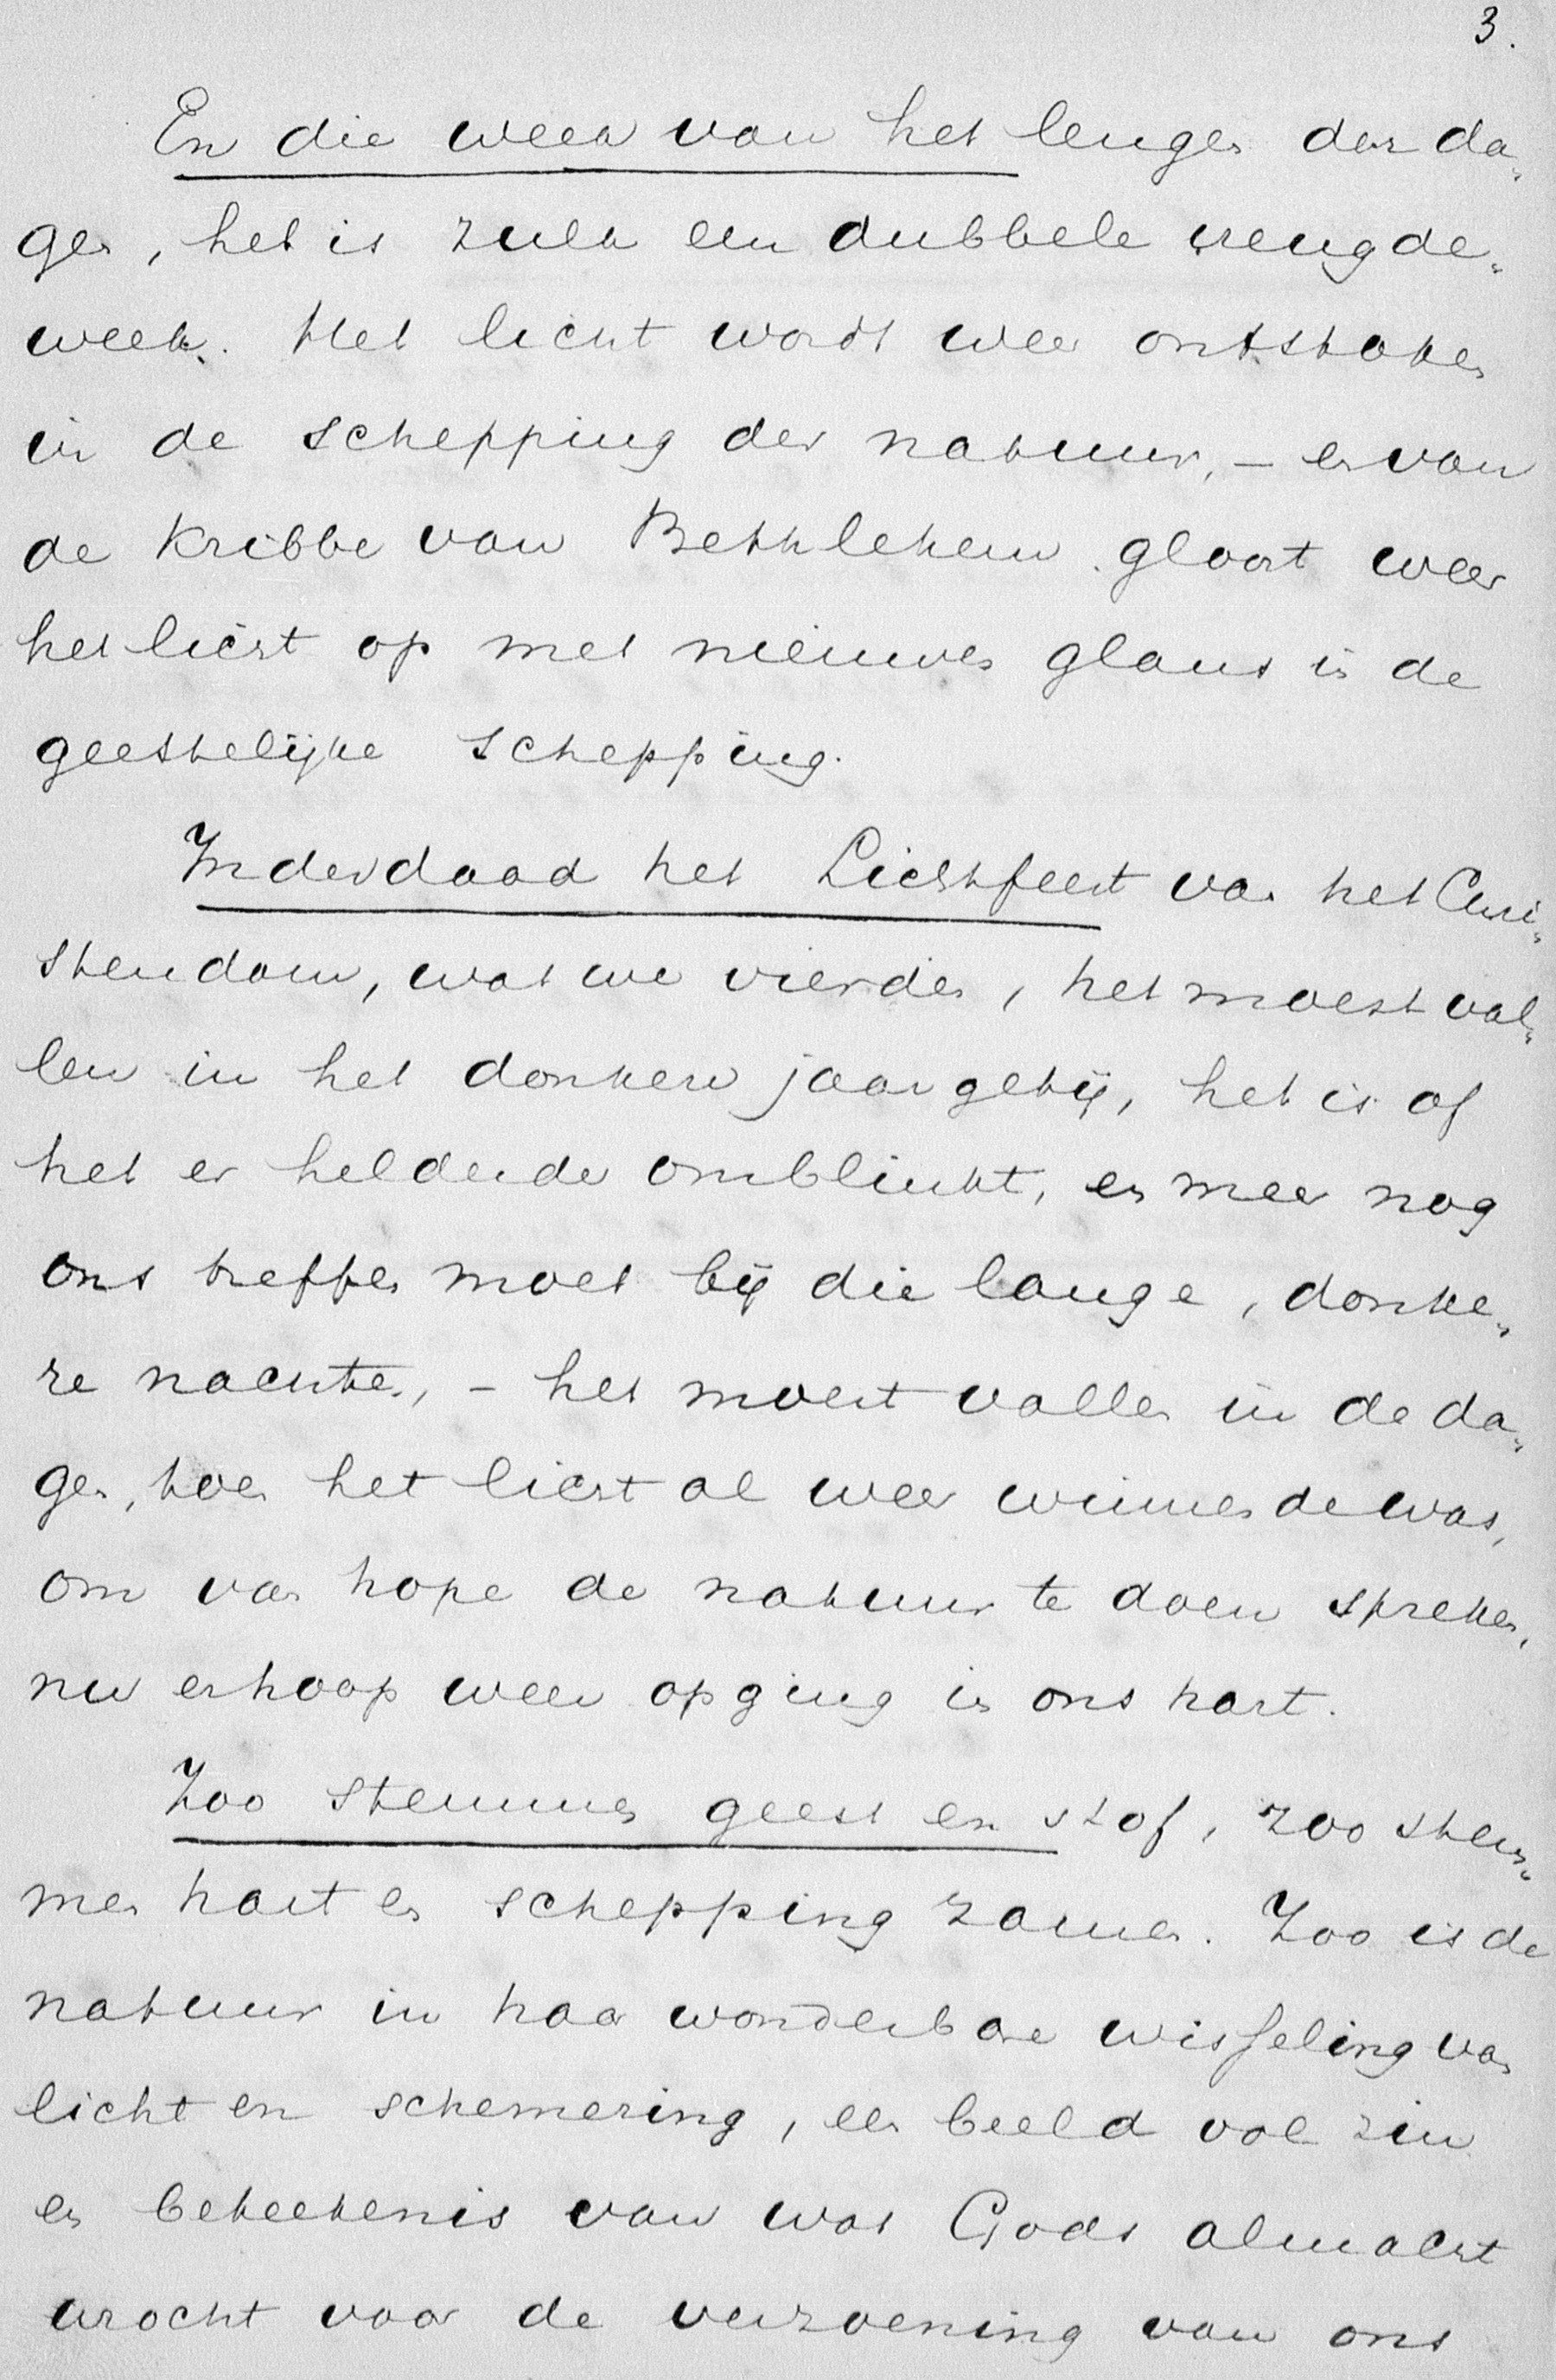 3.
En die week van het lengen der da„
gen, het is zulk een dubbele vreugde„
week. Het licht wordt weer ontstoken
in de schepping der natuur, – en van
de kribbe van Bethlehem gloort weer
het licht op met nieuwen glans in de
geestelijke schepping.
Inderdaad het Lichtfeest van het Chri„
stendom, wat we vierden, het moest val„
len in het donkere jaargetij, het is of
het er helderder omblinkt, en meer nog
ons treffen moet bij die lange, donke„
re nachten, – het moest vallen in de da„
gen, toen het licht al weer winnende was,
om van hope de natuur te doen spreken,
nu er hoop weer opging in ons hart.
Zoo stemmen geest en stof, zoo stem„
men hart en schepping zamen. Zoo is de
natuur in haar wonderbare wisseling van
licht en schemering, een beeld vol zin
en beteekenis van wat Gods almacht
wrocht voor de verzoening van ons